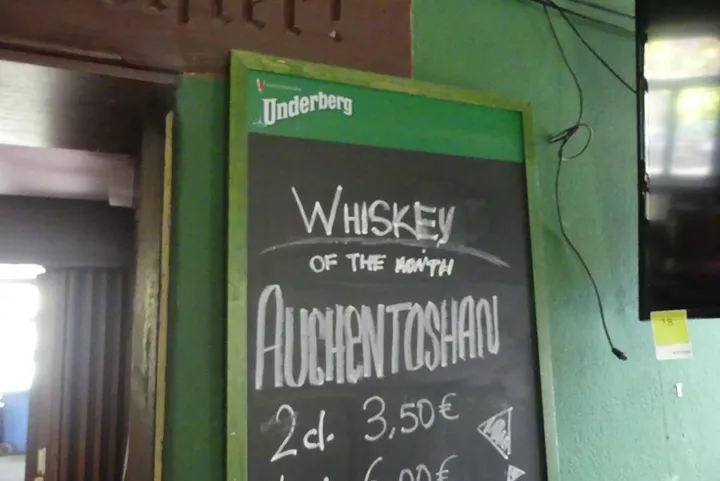 Underberg
WHISKEY
OF THE MONTH
AUCHENTOSHAN
2cl. 3,50€
6,00€